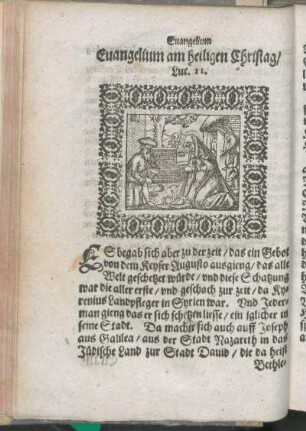 Euangelium
Euangelium am heiligen Christag/
Luc. II.
ES begab sich aber zu der zeit / das ein Gebot
von dem Keyser Augusto ausgieng / das alle
Welt geschetzet würde / vnd diese Schatzung
war die aller erste / vnd geschach zur zeit / da Ky-
renius Landpfleger in Syrien war. Vnd Jeder-
man gieng das er sich schetzen liesse / ein iglicher in
seine Stadt. Da machet sich auch auff Joseph
aus Galilea / aus der Stadt Nazareth in das
Jüdische Land zur Stadt Dauid / die da heist
Bethle-